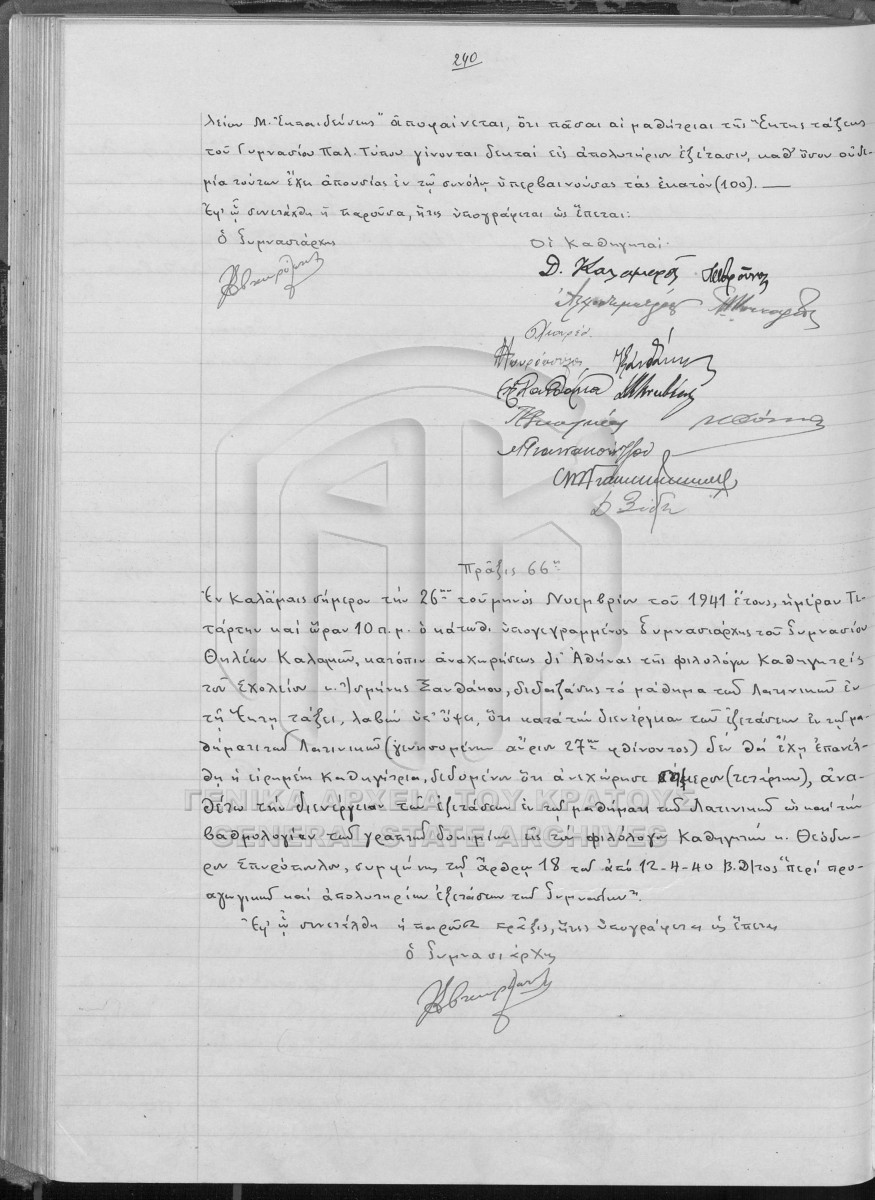 240
λείων Μ. Ἐκπαιδεύσεως" ἀποφαίνεται, ὅτι πᾶσαι αἱ μαθήτριαι τῆς Ἕκτης τάξεως
τοῦ Γυμνασίου Παλ. Τύπου γίνονται δεκταί εἰς ἀπολυτήριον ἐξέτασιν, καθ' ὅσον οὐδε-
μία τούτων ἔχει ἀπουσίας ἐν τῷ συνόλῳ ὑπερβαινούσας τάς ἑκατόν (100). —
Ἐφ' ᾧ συνετάχθη ἡ παροῦσα, ἥτις ὑπογράφεται ὡς ἕπεται:
ὁ Γυμνασιάρχης
Οἱ Καθηγηταί
Δ. Καλαμαρᾶς
Πρᾶξις 66η
Ἐν Καλάμαις σήμερον τήν 26ην τοῦ μηνός Νοεμβρίου τοῦ 1941 ἔτους, ἡμέραν Τε-
τάρτην καί ὥραν 10 π.μ. ὁ κάτωθι ὑπογεγραμμένος Γυμνασιάρχης τοῦ Γυμνασίου
Θηλέων Καλαμῶν, κατόπιν ἀναχωρήσεως δι' Ἀθήνας τῆς φιλολόγου Καθηγητρίας
τοῦ Σχολείου κ. Ἰσμήνης Ξανθάκου, διδαξάσης τό μάθημα τῶν Λατινικῶν ἐν
τῇ Ἕκτῃ τάξει, λαβών ὑπ' ὄψει, ὅτι κατά τήν διενέργειαν τῶν ἐξετάσεων ἐν τῷ μα-
θήματι τῶν Λατινικῶν (γενησομένην αὔριον 27ην φθίνοντος) δέν θά ἔχῃ ἐπανέλ-
θῃ ἡ εἰρημένη Καθηγήτρια, δεδομένου ὅτι ἀνεχώρησε σήμερον (τετάρτην), ἀνα-
θέτω τήν διενέργειαν τῶν ἐξετάσεων ἐν τῷ μαθήματι τῶν Λατινικῶν ὡς καί τήν
βαθμολογίαν τῶν γραπτῶν δοκιμίων εἰς τόν φιλόλογον Καθηγητήν κ. Θεόδω-
ρον Σπυρόπουλον, συμφώνως τῷ ἄρθρῳ 18 τοῦ ἀπό 12-4-40 Β.Δ/τος "περί προ-
αγωγικῶν καί ἀπολυτηρίων ἐξετάσεων τῶν Γυμνασίων".
Ἐφ' ᾧ συνετάχθη ἡ παροῦσα πρᾶξις, ἥτις ὑπογράφεται ὡς ἕπεται
ὁ Γυμνασιάρχης
ΓΕΝΙΚΑ ΑΡΧΕΙΑ ΤΟΥ ΚΡΑΤΟΥΣ
GENERAL STATE ARCHIVES